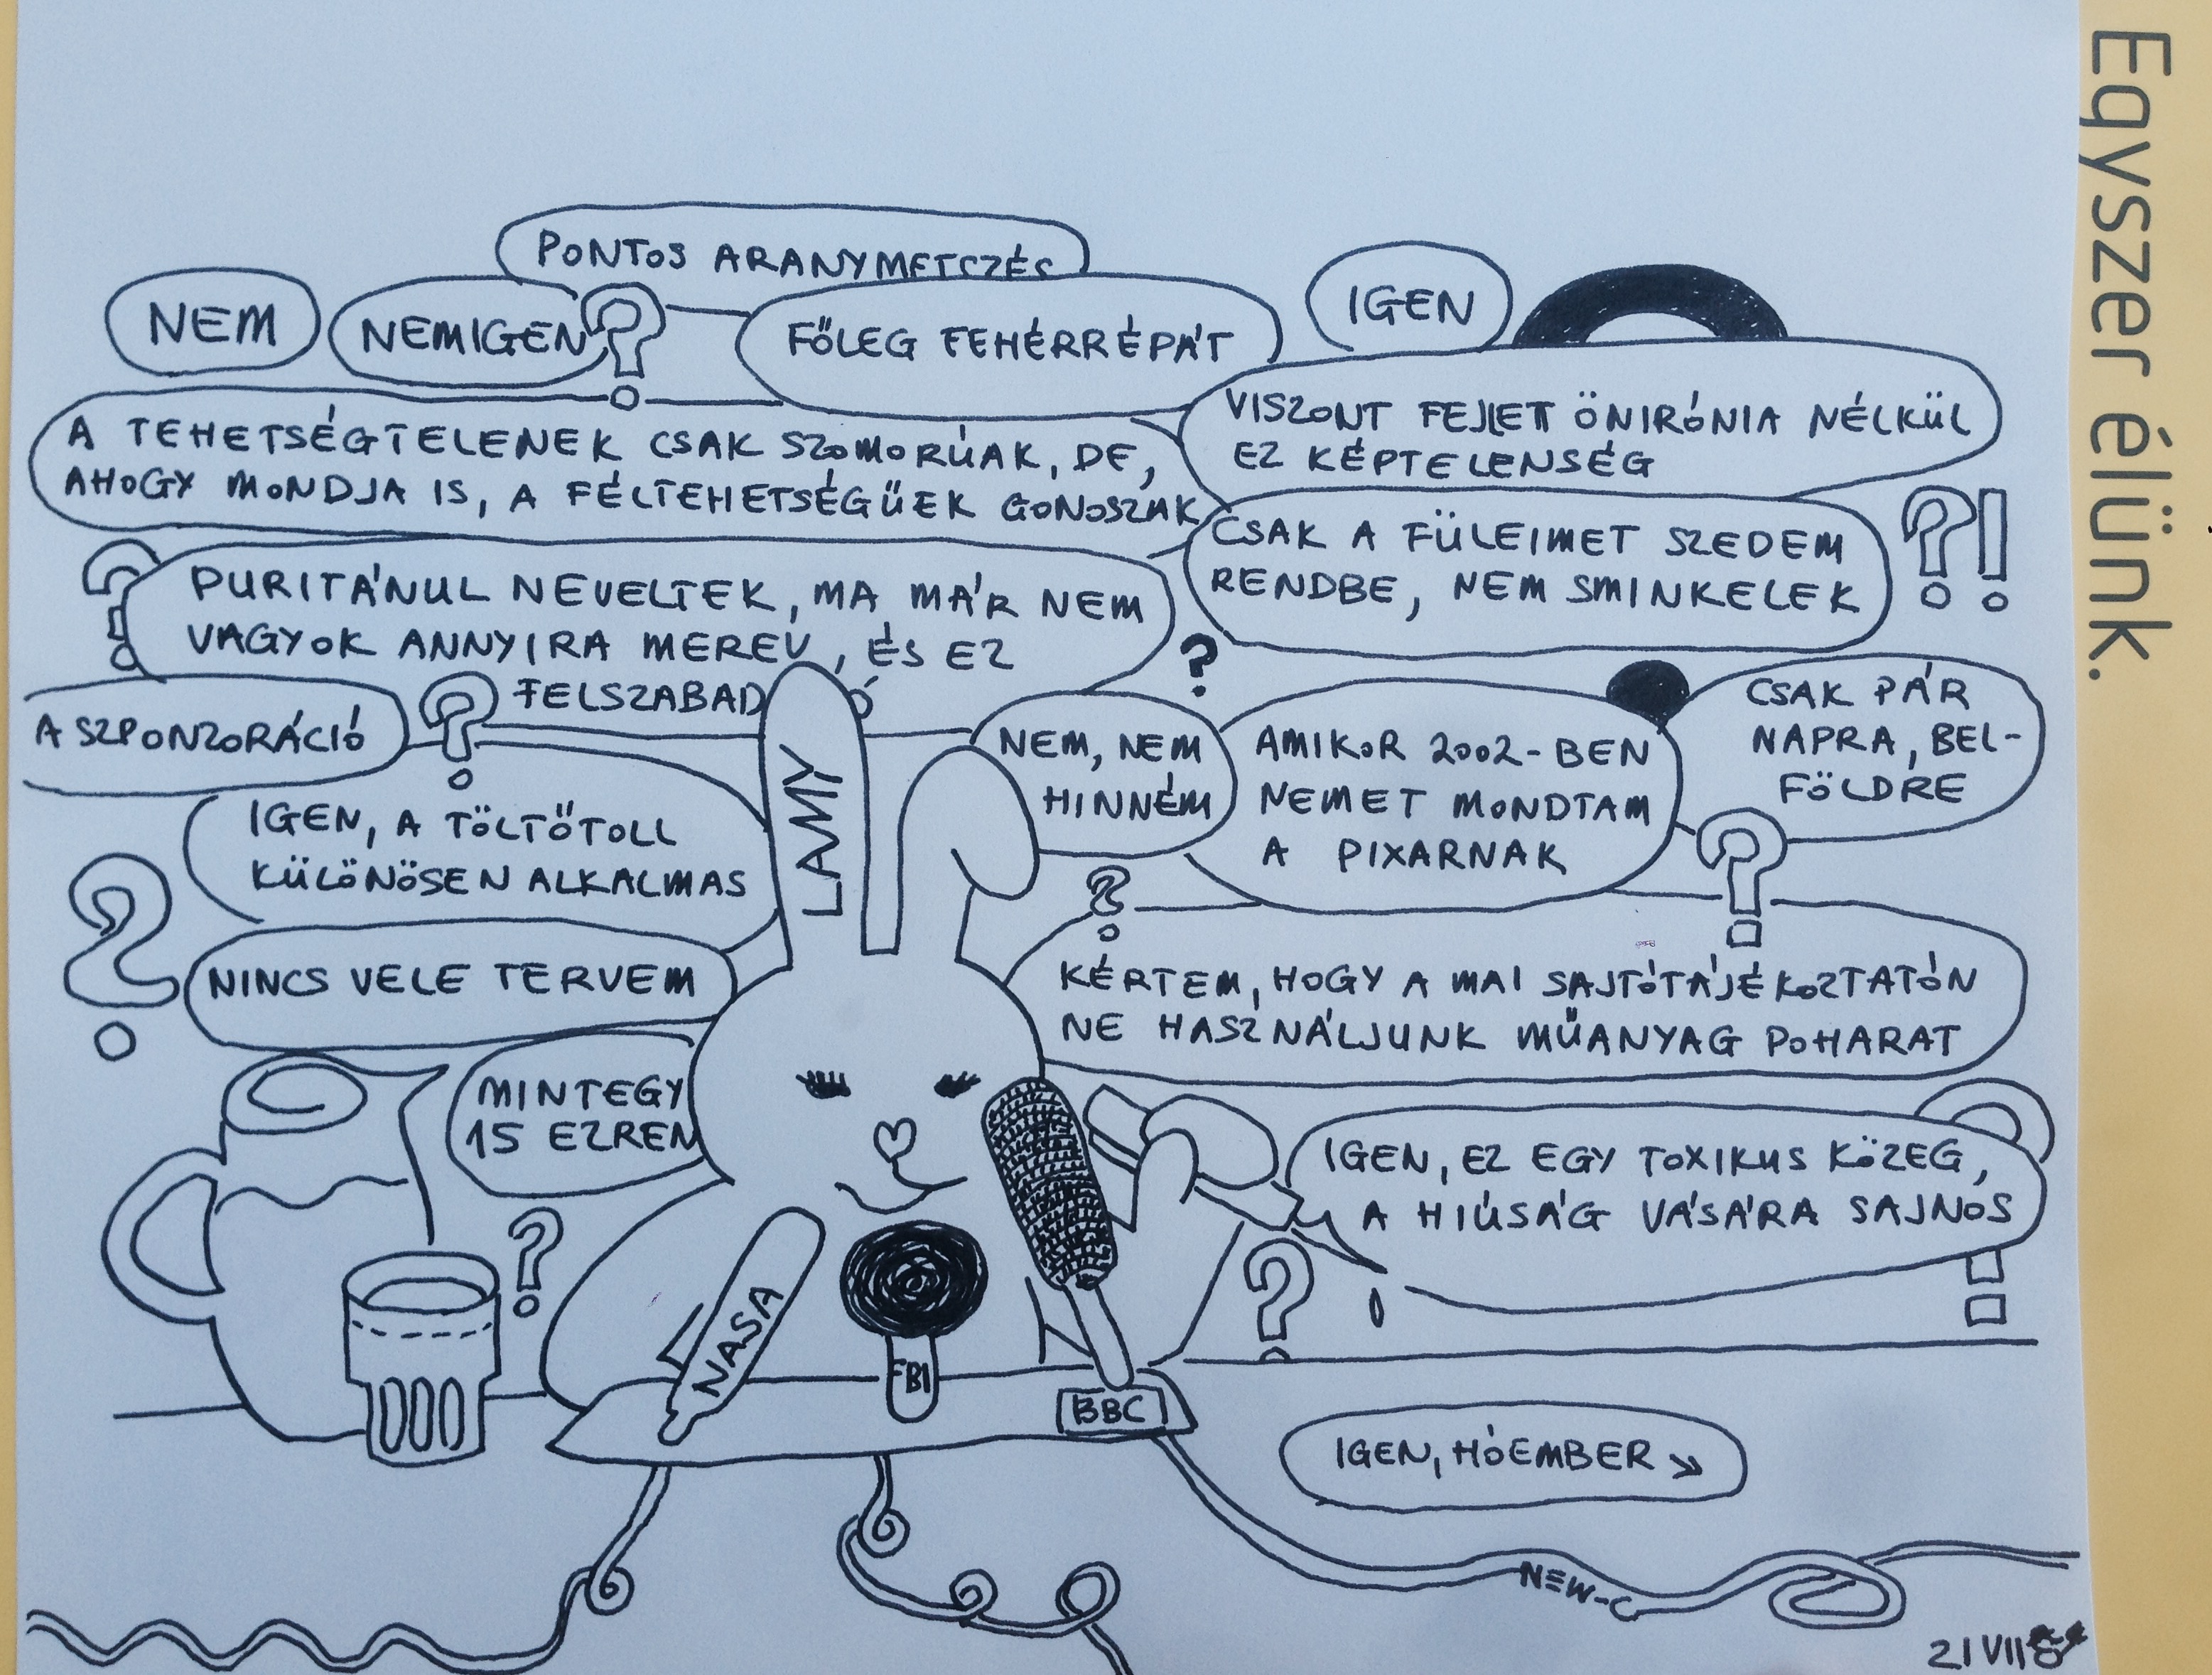 Egyszer élünk.
PONTOS ARANYMETSZÉS
NEM
NEMIGEN
?
FŐLEG FEHÉRRÉPÁT
IGEN
A TEHETSÉGTELENEK CSAK SZOMORÚAK, DE,
AHOGY MONDJA IS, A FÉLTEHETSÉGŰEK GONOSZAK
VISZONT FEJLETT ÖNIRÓNIA NÉLKÜL
EZ KÉPTELENSÉG
CSAK A FÜLEIMET SZEDEM
RENDBE, NEM SMINKELEK
?!
PURITÁNUL NEVELTEK, MA MÁR NEM
VAGYOK ANNYIRA MEREV, ÉS EZ
FELSZABAD
?
A SZPONZORÁCIÓ
?
NEM, NEM
HINNÉM
AMIKOR 2002-BEN
NEMET MONDTAM
A PIXARNAK
CSAK PÁR
NAPRA, BEL-
FÖLDRE
?
IGEN, A TÖLTŐTOLL
KÜLÖNÖSEN ALKALMAS
LAMY
?
?
NINCS VELE TERVEM
KÉRTEM, HOGY A MAI SAJTÓTÁJÉKOZTATÓN
NE HASZNÁLJUNK MŰANYAG POHARAT
MINTEGY
15 EZREN
?
IGEN, EZ EGY TOXIKUS KÖZEG,
A HIÚSÁG VÁSÁRA SAJNOS
?
NASA
FBI
BBC
IGEN, HÓEMBER ↘
NEW-C
21 VII